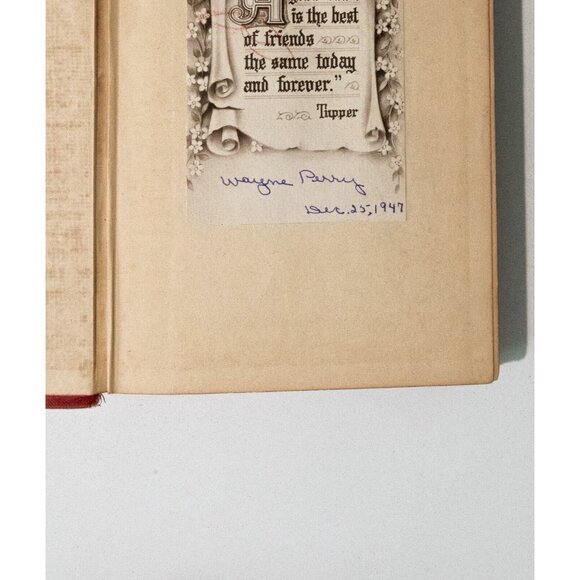 A
is the best
of friends
the same today
and forever."
Tupper
Wayne Perry
Dec. 25, 1947